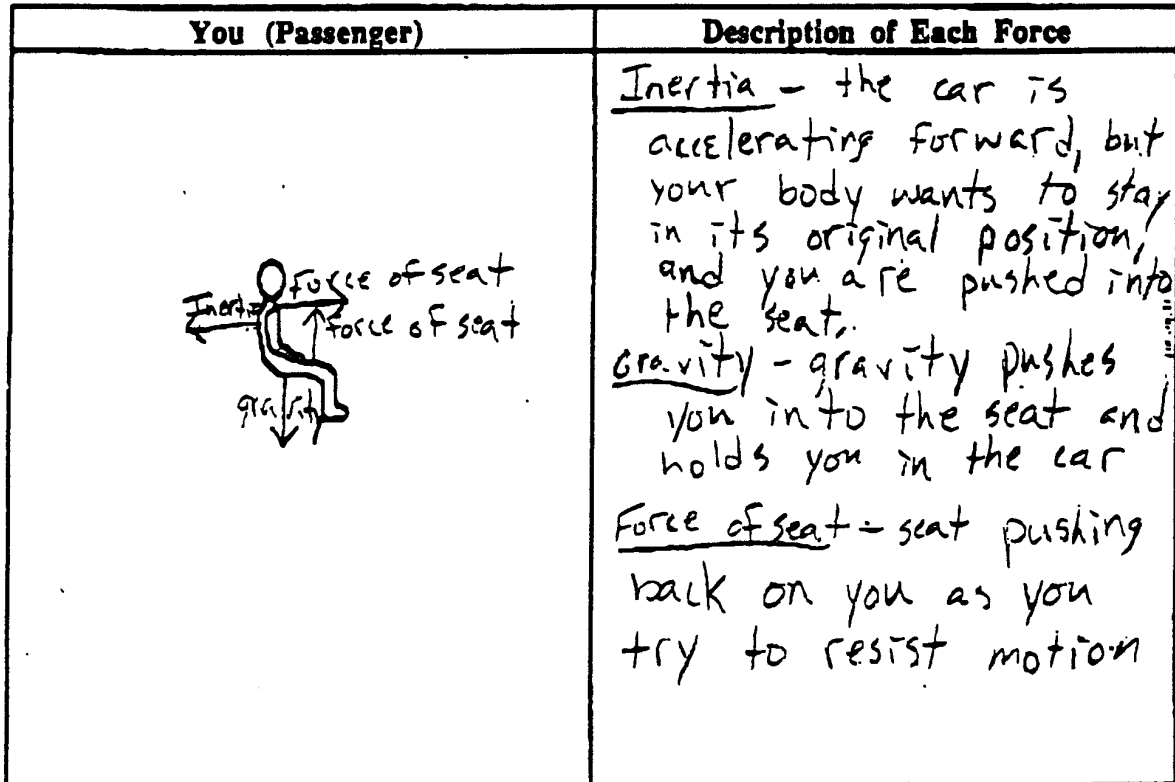 You (Passenger)
Description of Each Force
Inertia
force of seat
force of seat
gravity
Inertia - the car is
accelerating forward, but
your body wants to stay
in its original position,
and you are pushed into
the seat.
Gravity - gravity pushes
you into the seat and
holds you in the car
Force of seat - seat pushing
back on you as you
try to resist motion